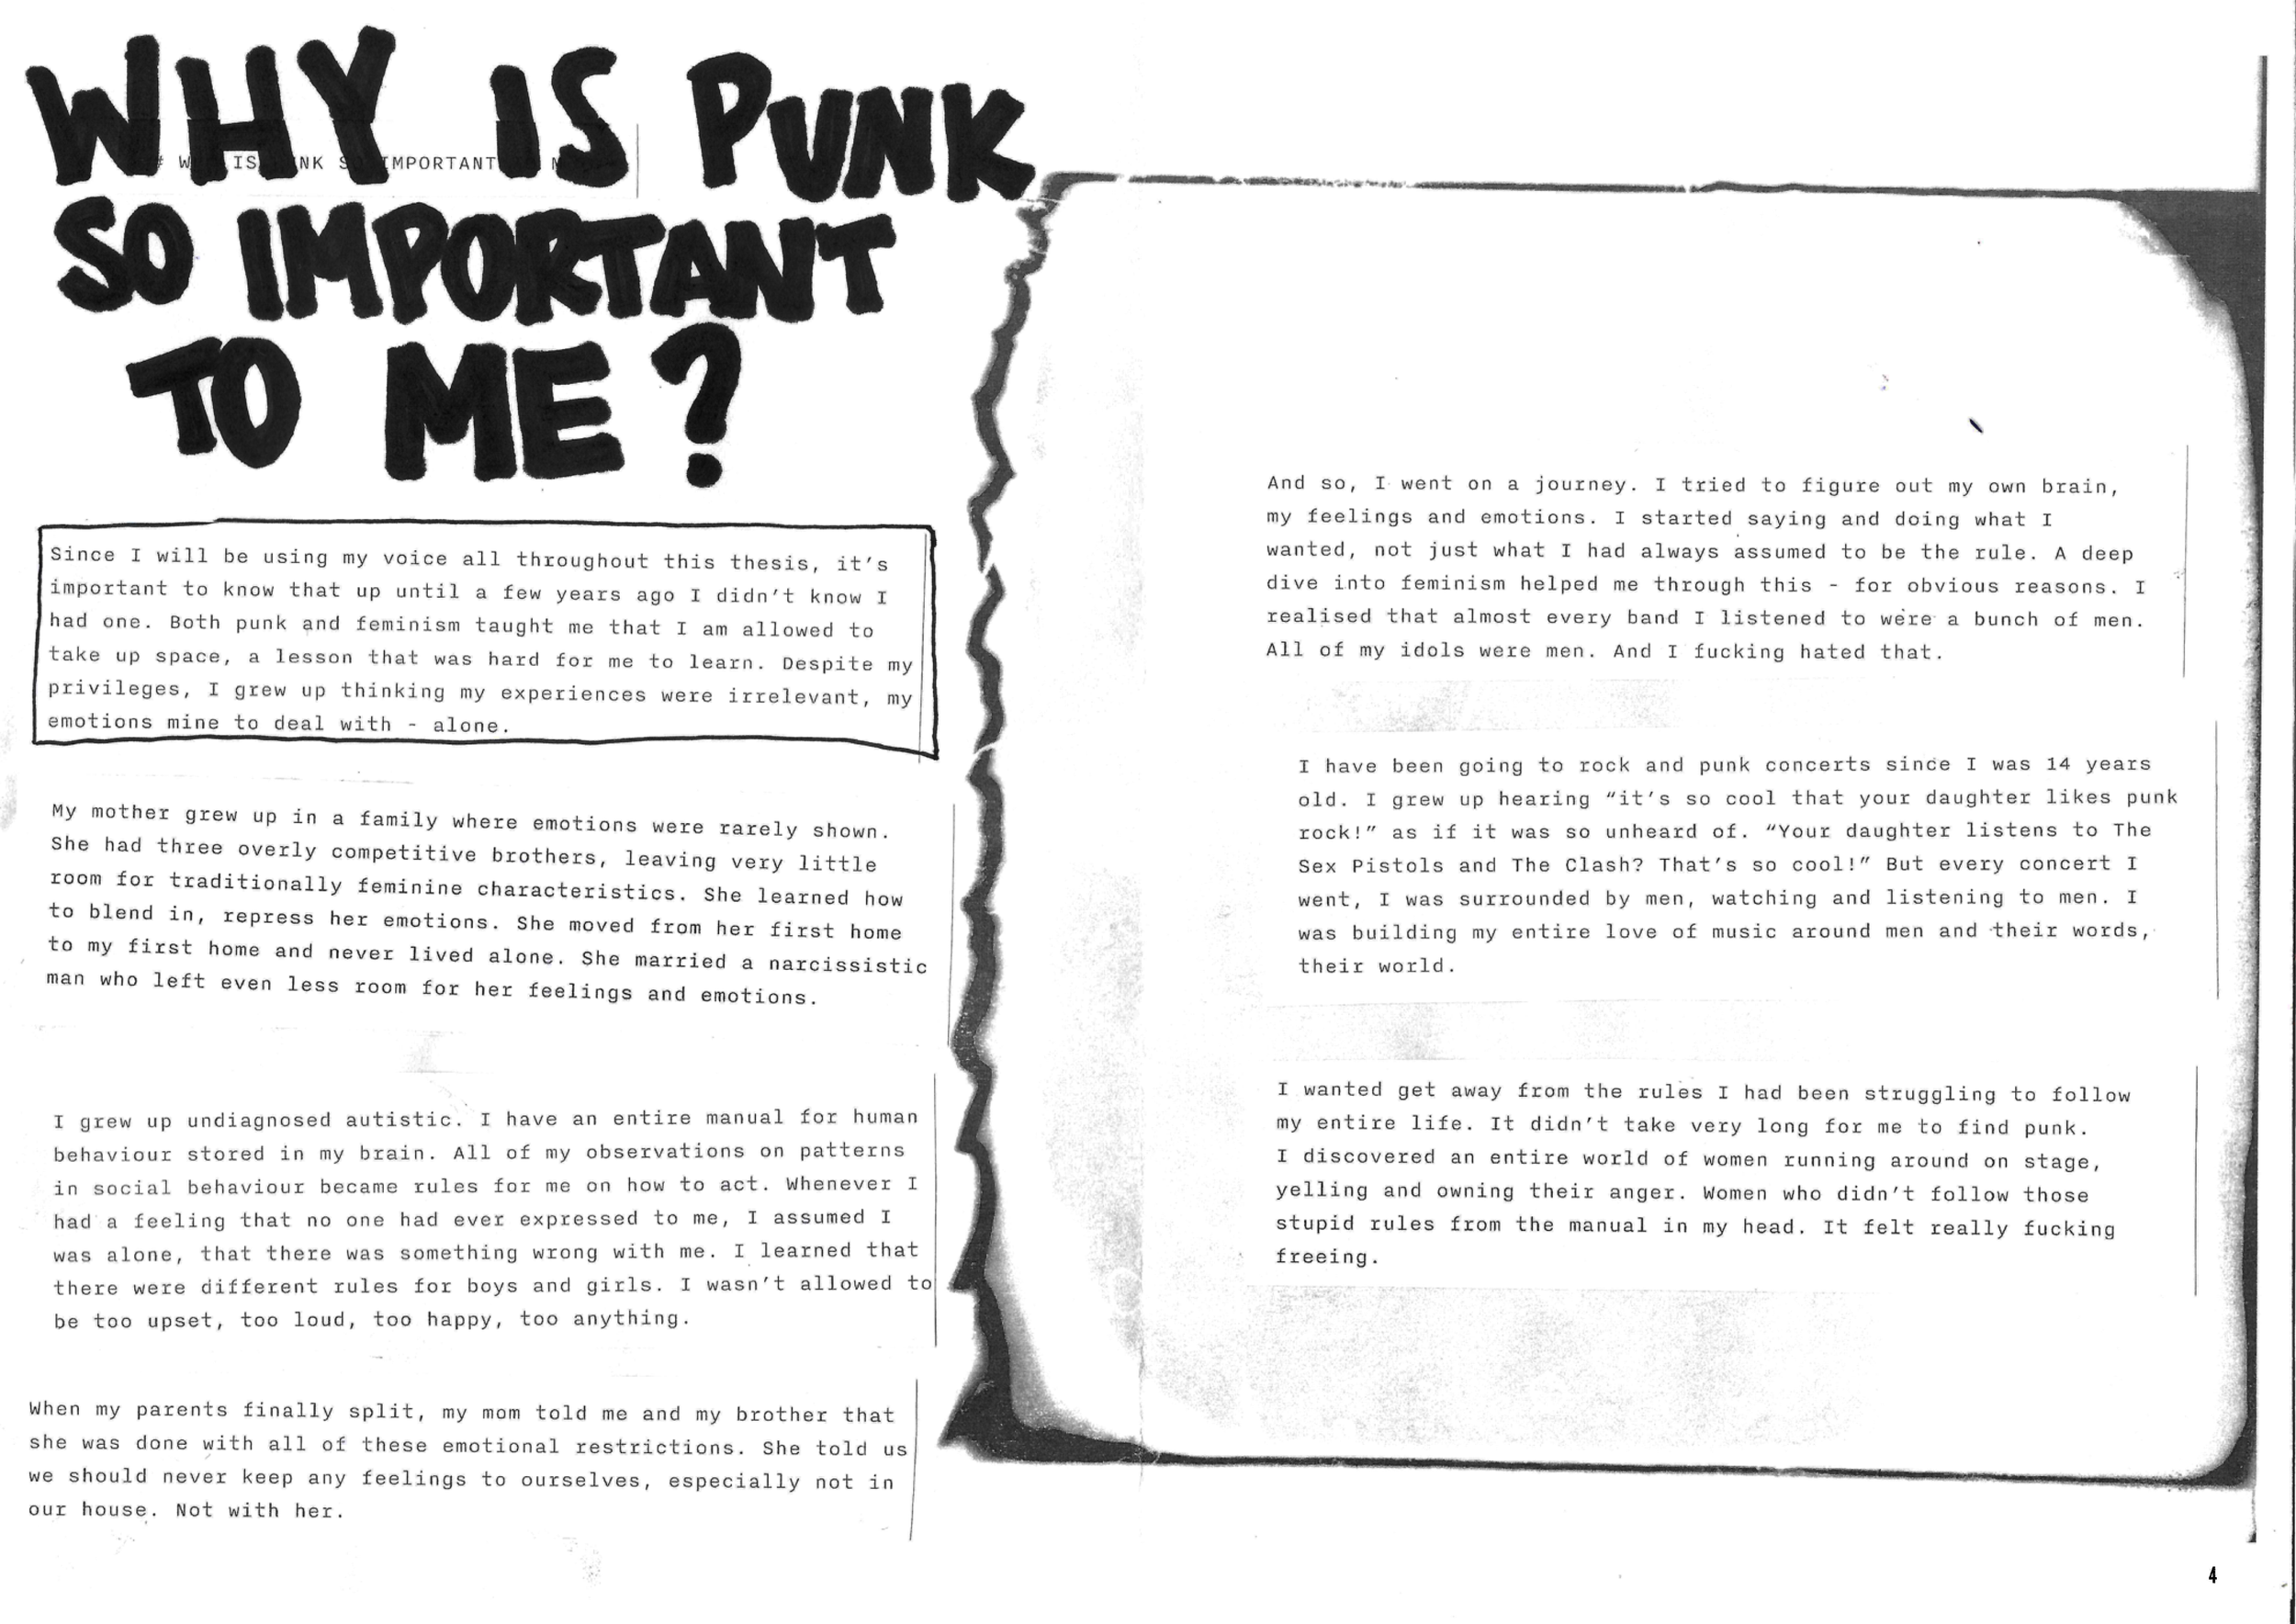 WHY IS PUNK
SO IMPORTANT
TO ME?
# W IS NK S IMPORTANT
Since I will be using my voice all throughout this thesis, it's
important to know that up until a few years ago I didn't know I
had one. Both punk and feminism taught me that I am allowed to
take up space, a lesson that was hard for me to learn. Despite my
privileges, I grew up thinking my experiences were irrelevant, my
emotions mine to deal with - alone.
My mother grew up in a family where emotions were rarely shown.
She had three overly competitive brothers, leaving very little
room for traditionally feminine characteristics. She learned how
to blend in, repress her emotions. She moved from her first home
to my first home and never lived alone. She married a narcissistic
man who left even less room for her feelings and emotions.
I grew up undiagnosed autistic. I have an entire manual for human
behaviour stored in my brain. All of my observations on patterns
in social behaviour became rules for me on how to act. Whenever I
had a feeling that no one had ever expressed to me, I assumed I
was alone, that there was something wrong with me. I learned that
there were different rules for boys and girls. I wasn't allowed to
be too upset, too loud, too happy, too anything.
When my parents finally split, my mom told me and my brother that
she was done with all of these emotional restrictions. She told us
we should never keep any feelings to ourselves, especially not in
our house. Not with her.
And so, I went on a journey. I tried to figure out my own brain,
my feelings and emotions. I started saying and doing what I
wanted, not just what I had always assumed to be the rule. A deep
dive into feminism helped me through this - for obvious reasons. I
realised that almost every band I listened to were a bunch of men.
All of my idols were men. And I fucking hated that.
I have been going to rock and punk concerts since I was 14 years
old. I grew up hearing “it's so cool that your daughter likes punk
rock!” as if it was so unheard of. “Your daughter listens to The
Sex Pistols and The Clash? That's so cool!” But every concert I
went, I was surrounded by men, watching and listening to men. I
was building my entire love of music around men and their words,
their world.
I wanted get away from the rules I had been struggling to follow
my entire life. It didn't take very long for me to find punk.
I discovered an entire world of women running around on stage,
yelling and owning their anger. Women who didn't follow those
stupid rules from the manual in my head. It felt really fucking
freeing.
4